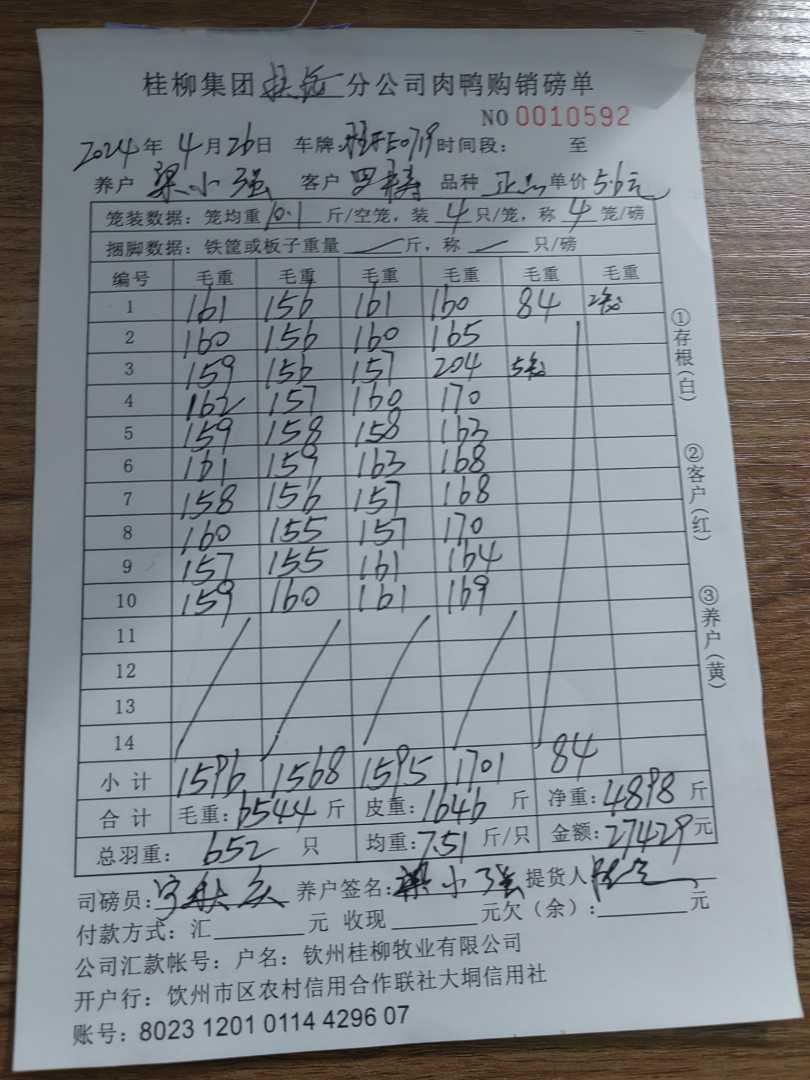 桂柳集团扶绥分公司肉鸭购销磅单
NO 0010592
2024年4月26日 车牌:桂FE0719 时间段: 至
养户 梁小强 客户 罗 品种 正品 单价 5.6元
笼装数据：笼均重10.1斤/空笼，装4只/笼，称4笼/磅
捆脚数据：铁筐或板子重量 斤，称 只/磅
编号 毛重 毛重 毛重 毛重 毛重 毛重
1 161 156 161 160 84 2笼
2 160 156 160 165
3 159 156 157 204 5笼
4 162 157 160 170
5 159 158 158 163
6 161 159 163 168
7 158 156 157 168
8 160 155 157 170
9 157 155 161 164
10 159 160 161 169
11
12
13
14
小计 1596 1568 1595 1701 84
合计 毛重:6544斤 皮重:1646斤 净重:4898斤
总羽重: 652只 均重:7.51斤/只 金额:27429元
司磅员: 养户签名:梁小强 提货人
付款方式：汇 元 收现 元欠（余）： 元
公司汇款帐号：户名：钦州桂柳牧业有限公司
开户行：饮州市区农村信用合作联社大垌信用社
账号：8023 1201 0114 4296 07
①存根(白)
②客户(红)
③养户(黄)